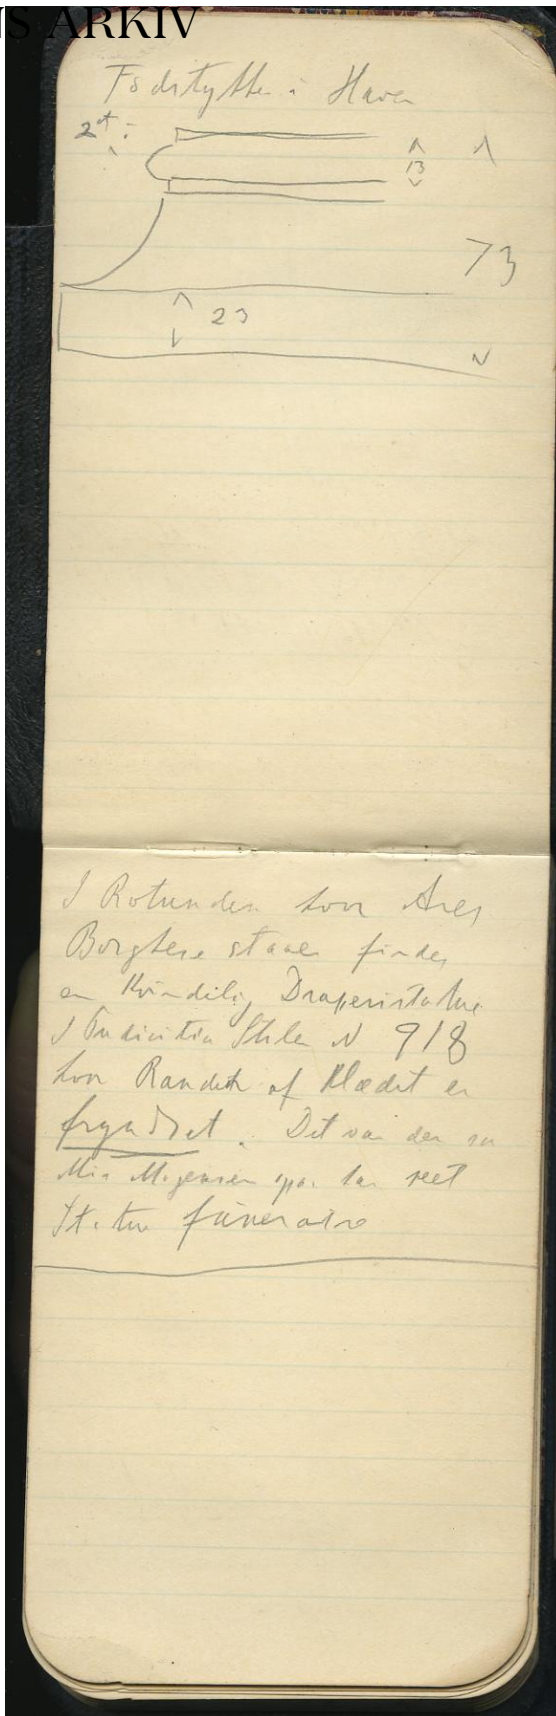 NS ARKIV
Fodstytter i Haven
2
13
73
23
I Rotunden hvor Ares
Borghese staaer findes
en Kvindelig Draperistatue
I Pudicitia Stilen N 918
hvor Randen af Klædet er
fryndset. Det var den
Mogensen har seet
Statue funeraire